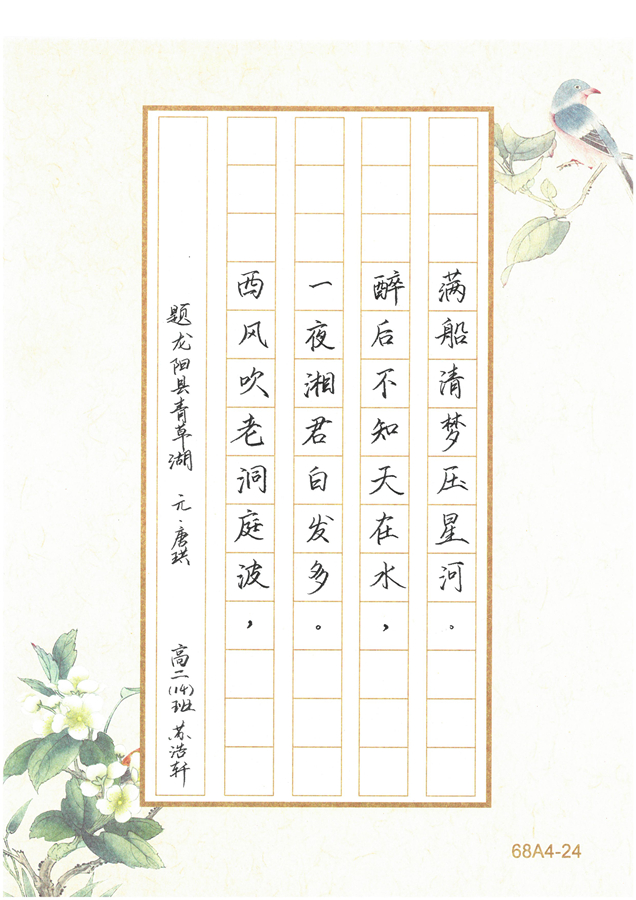 题龙阳县青草湖 元·唐珙 高二(14)班 苏浩轩
西风吹老洞庭波，
一夜湘君白发多。
醉后不知天在水，
满船清梦压星河。
68A4-24